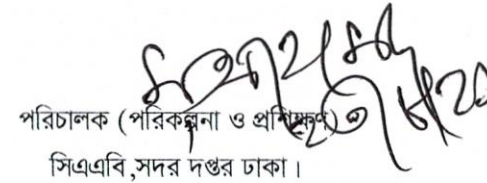 পরিচালক (পরিকল্পনা ও প্রশিক্ষণ)
সিএএবি,সদর দপ্তর ঢাকা।